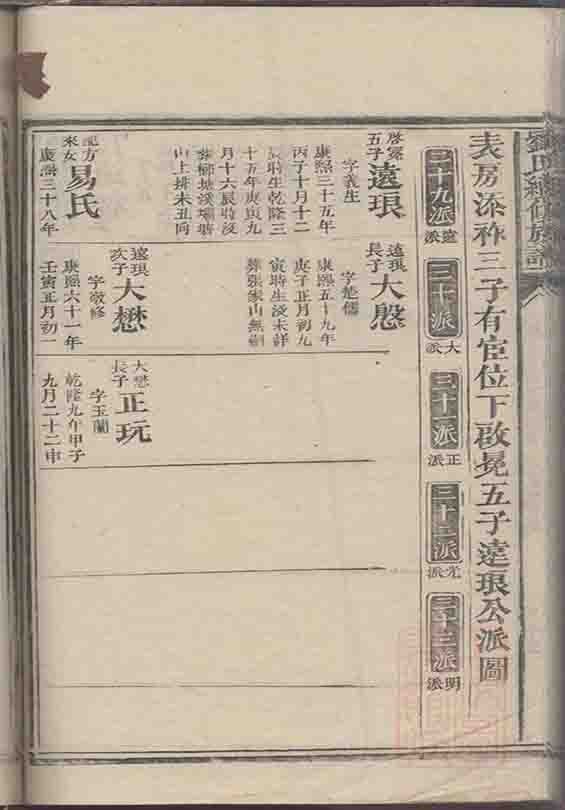 劉氏續修族譜
表房添祚三子有宦位下啟冕五子遠琅公派圖
二十九派
遠派
三十派
大派
三十一派
正派
三十二派
光派
三十三派
明派
啓冕
五子
遠琅
字義生
康熙三十五年
丙子十月十二
辰時生乾隆三
十五年庚寅九
月十六辰時沒
葬鄉塘溪壩塘
山上排未丑向
配方
來女
易氏
康熙三十八年
遠琅
長子
大慇
字楚儒
康熙五十九年
庚子正月初九
寅時生沒未詳
葬張家山無嗣
遠琅
次子
大懋
字敬修
康熙六十一年
壬寅正月初一
大懋
長子
正玩
字玉蘭
乾隆九年甲子
九月二十二申